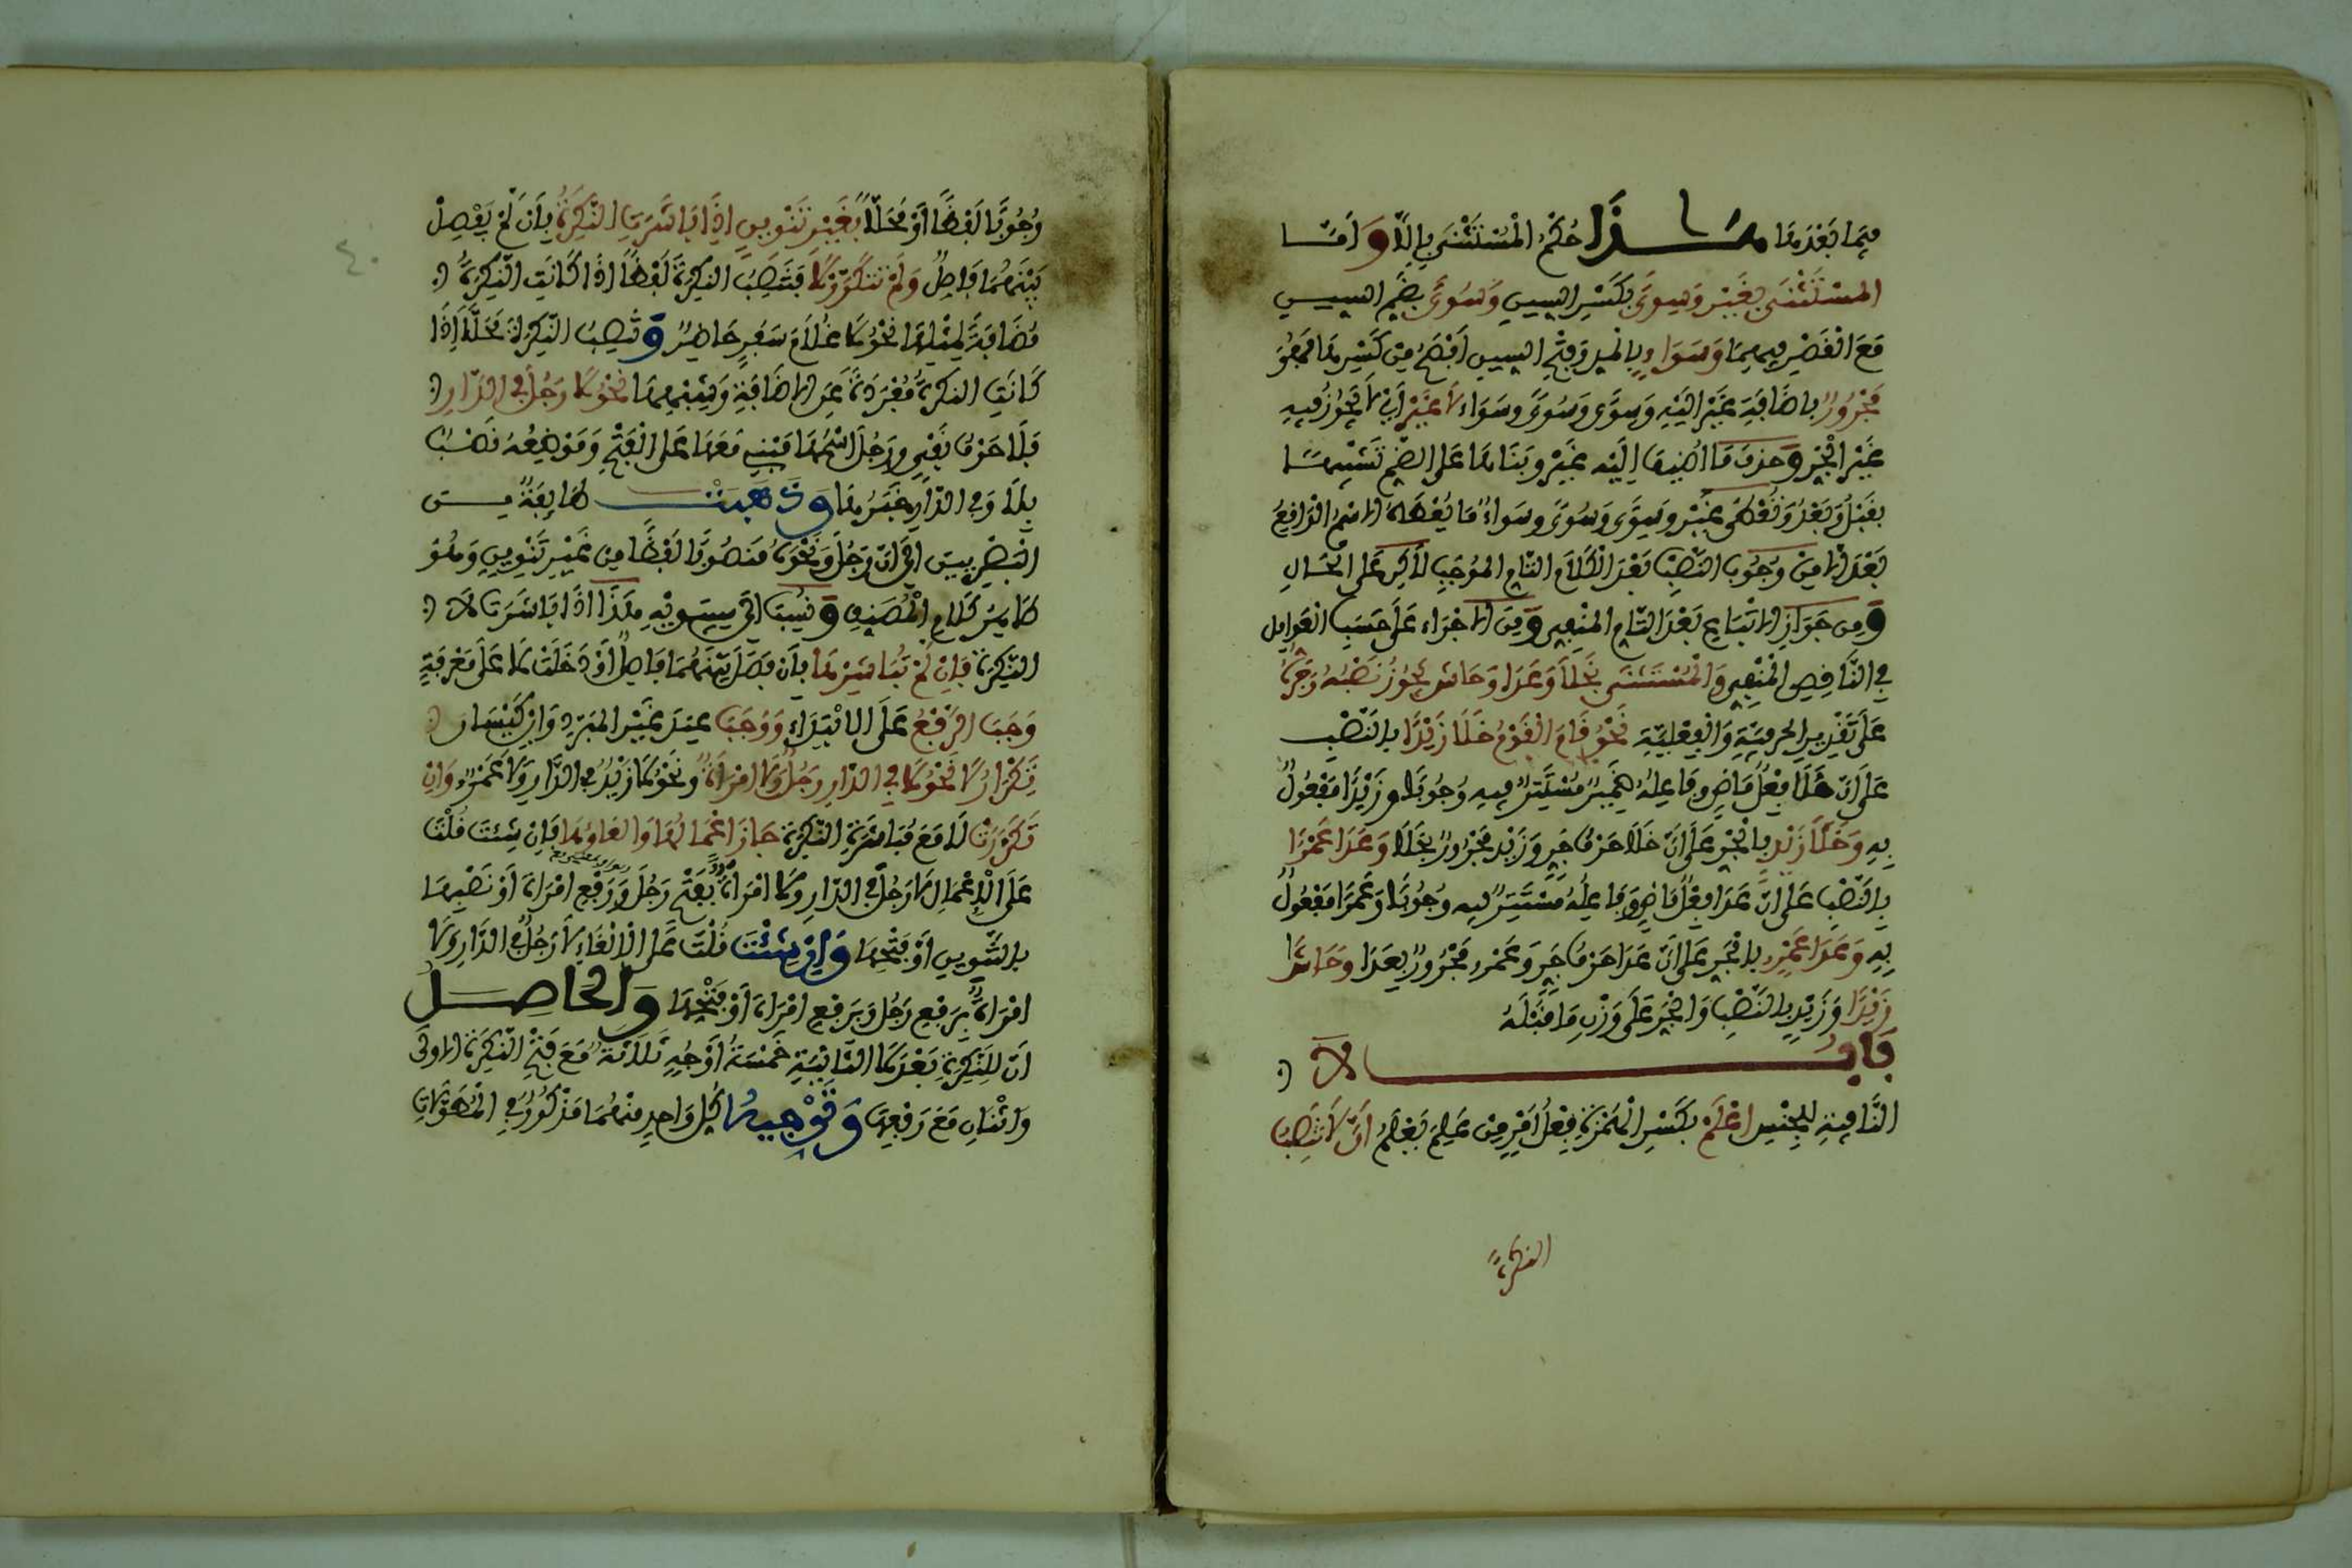 فيما بعدها هذا حكم المستثنى بإلا وأما
المستثنى بغير وسوى بكسر السين وسوى بضم السين
مع القصر فيهما وسواء بالمد وفتح السين أفصح من كسرها فهو
مجرور بإضافة غير إليه وسوى وسوى وسواء لا غير أي لا يجوز فيه
غير الجر وحذف ما أضيف إليه غير وبناءها على الضم تشبيها
بقبل وبعد وتعطى غير وسوى وسوى وسواء ما يعطاه الاسم الواقع
بعد إلا من وجوب النصب بعد الكلام التام الموجب لكن على الحال
ومن جواز الاتباع بعد التام المنفي ومن الاجراء على حسب العوامل
في الناقص المنفي والمستثنى بخلا وعدا وحاشا يجوز نصبه وجره
على تقدير الحرفية والفعلية نحو قام القوم خلا زيدا بالنصب
على أن خلا فعل ماض وفاعله ضمير مستتر فيه وجوبا وزيدا مفعول
به وخلا زيد بالجر على أن خلا حرف جر وزيد مجرور بخلا وعدا عمرا
بالنصب على أن عدا فعل ماض وفاعله مستتر فيه وجوبا وعمرا مفعول
به وعدا عمرو بالجر على أن عدا حرف جر وعمرو مجرور بعدا وحاشا
زيدا وزيد بالنصب والجر على وزن ما قبله
باب لا
النافية للجنس اعلم بكسر الهمزة فعل أمر من علم يعلم أن لا تنصب
النكرة
وجوبا لفظا أو محلا بغير تنوين إذا باشرت النكرة بأن لم يفصل
بينهما فاصل ولم تتكرر لا فتنصب النكرة لفظا إذا كانت النكرة
مضافة لمثلها نحو لا غلام سفر حاضر وتنصب النكرة محلا إذا
كانت النكرة مفردة عن الإضافة وشبهها نحو لا رجل في الدار
فلا حرف نفي ورجل اسمها مبني معها على الفتح وموضعه نصب
بلا وفي الدار خبرها وذهبت طائفة من
البصريين إلى أن رجل ونحوه منصوب لفظا من غير تنوين وهو
ظاهر كلام المصنف ونسب إلى سيبويه هذا إذا باشرت لا
النكرة فإن لم تباشرها بأن فصل بينهما فاصل أو دخلت لا على معرفة
وجب الرفع على الابتداء ووجب عند غير المبرد وابن كيسان
تكرار لا نحو لا في الدار رجل ولا امرأة ونحو لا زيد في الدار ولا عمرو وإن
تكررت لا مع مباشرة النكرة جاز إعمالها وإلغاؤها فإن شئت قلت
على الإعمال لا رجل في الدار ولا امرأة بفتح رجل ورفع امرأة أو نصبها
بالتنوين أو فتحها وإن شئت قلت على الإلغاء لا رجل في الدار ولا
امرأة برفع رجل وبرفع امرأة أو فتحها والحاصل
أن للنكرة بعد لا الثانية خمسة أوجه ثلاثة مع فتح النكرة الأولى
واثنان مع رفعها وتوجيه كل واحد منهما مذكور في المطولات